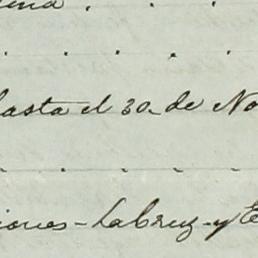 hasta el 30 de No
iones - La Cruz - y E